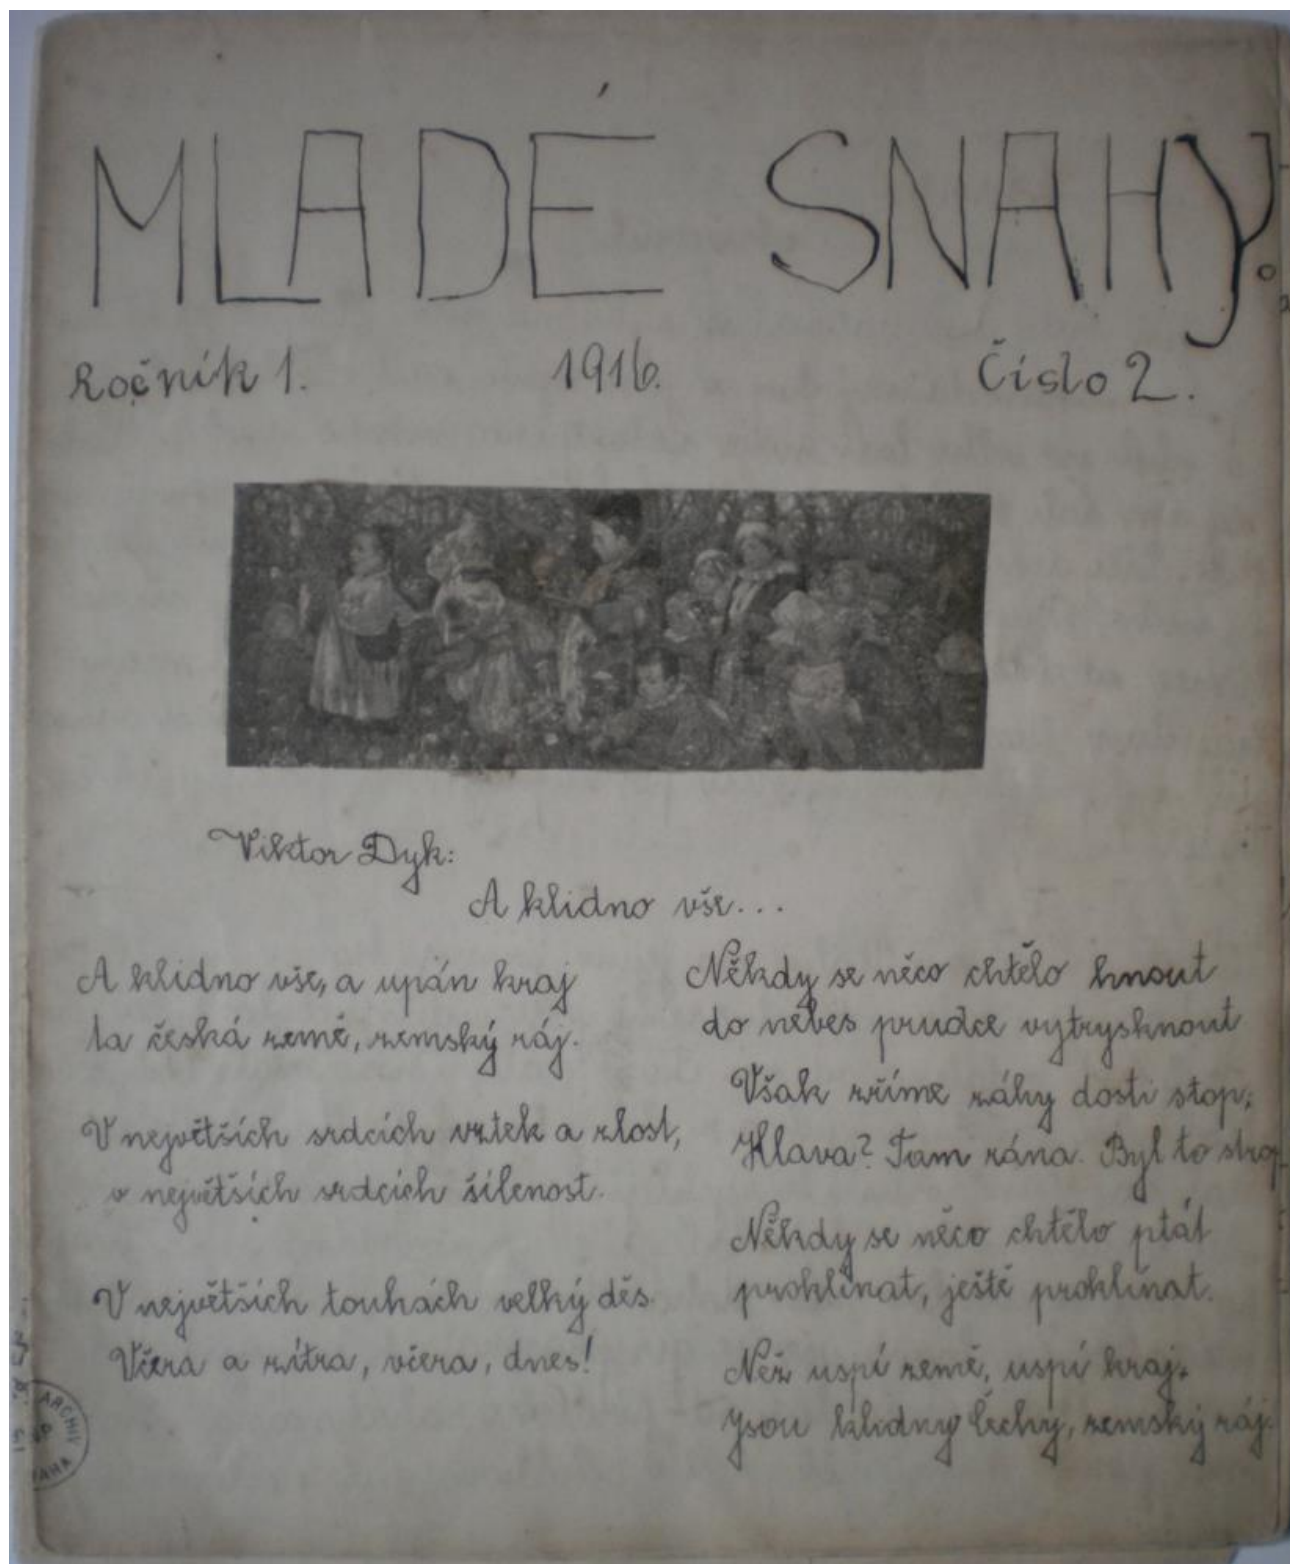 MLADÉ SNAHY.
Ročník 1. 1916. Číslo 2.
Viktor Dyk:
A klidno vše...
A klidno vše, a upán kraj
ta česká země, zemský ráj.
V největších srdcích vztek a zlost,
v největších srdcích šílenost.
V největších touhách velký děs.
Včera a zítra, včera, dnes!
Někdy se něco chtělo hnout
do nebes prudce vytrysknout
Však zříme záhy dosti stop,
Hlava? Tam rána. Byl to strop
Někdy se něco chtělo ptát
proklínat, ještě proklínat.
Než uspí země, uspí kraj,
Jsou klidny Čechy, zemský ráj.
ARCHIV